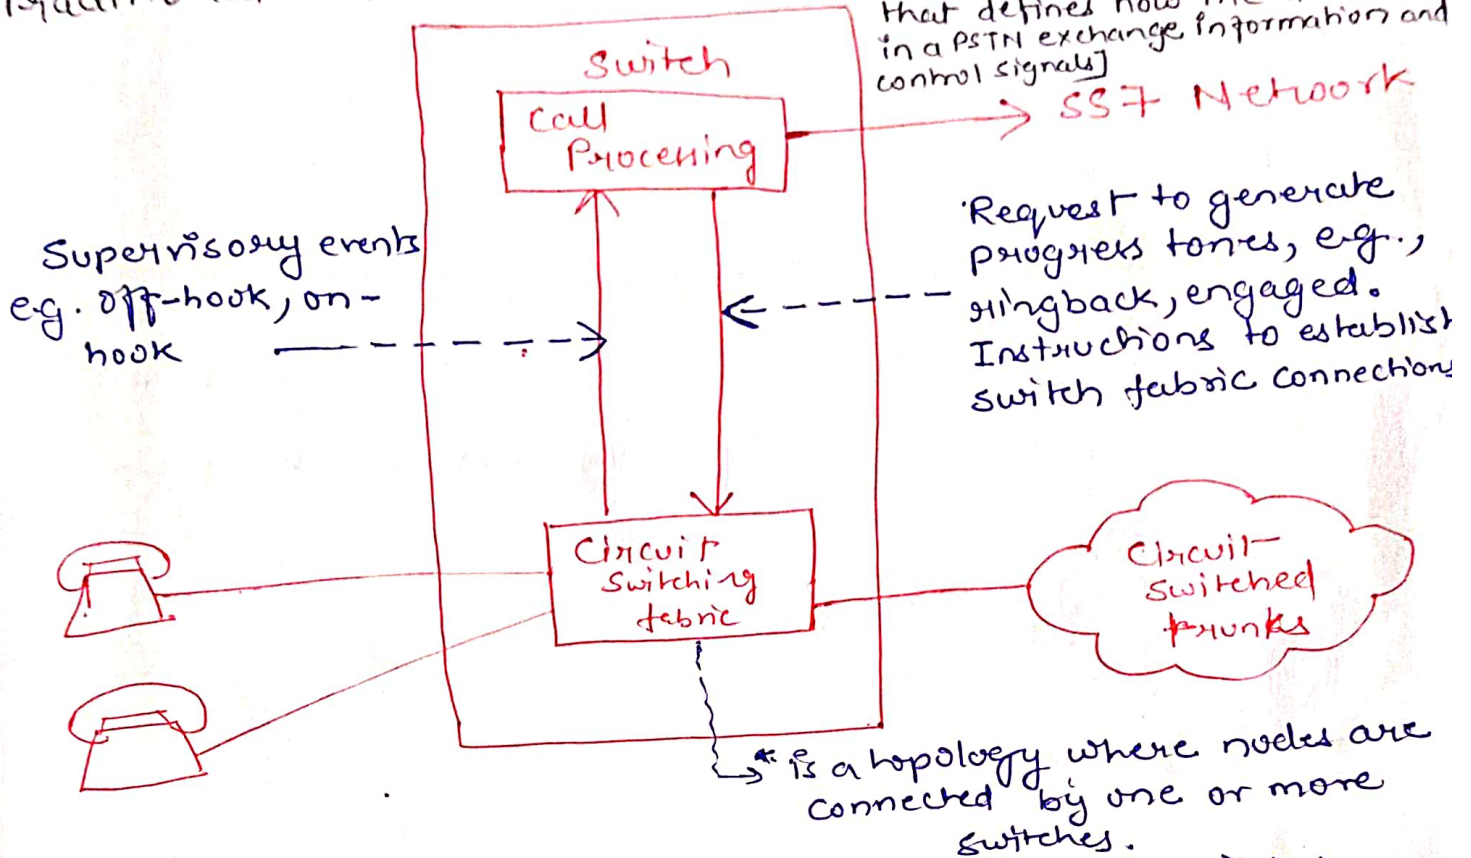 that defines how
in a PSTN exchange information and
control signals]
Switch
Call
Processing
SS7 Network
Supervisory events
e.g. off-hook, on-
hook
Request to generate
progress tones, e.g.,
ringback, engaged.
Instructions to establish
switch fabric connections
Circuit
switching
fabric
Circuit-
switched
trunks
* is a topology where nodes are
connected by one or more
switches.